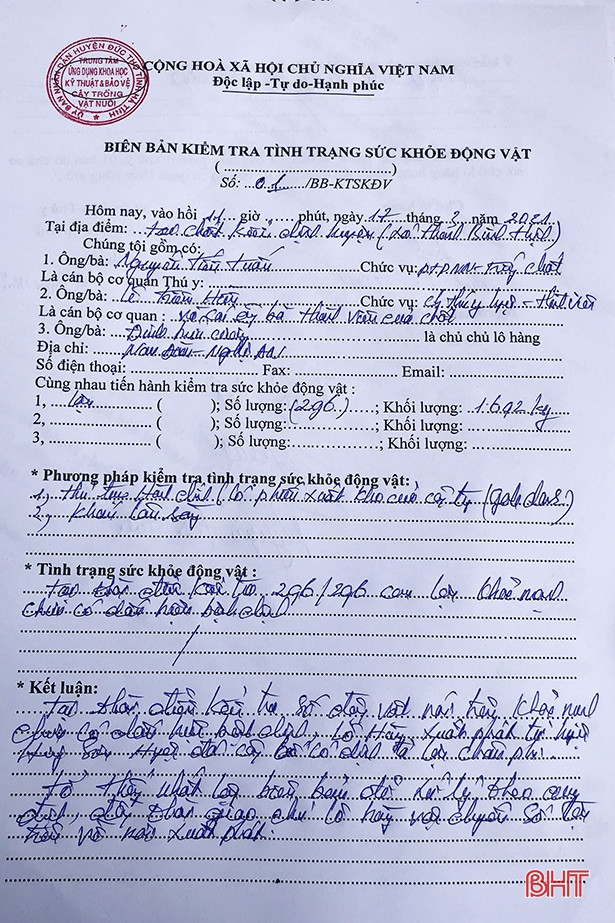 ỦY BAN NHÂN DÂN HUYỆN ĐỨC THỌ TỈNH HÀ TĨNH
TRUNG TÂM
ỨNG DỤNG KHOA HỌC
KỸ THUẬT & BẢO VỆ
CÂY TRỒNG
VẬT NUÔI
CỘNG HOÀ XÃ HỘI CHỦ NGHĨA VIỆT NAM
Độc lập -Tự do-Hạnh phúc
BIÊN BẢN KIỂM TRA TÌNH TRẠNG SỨC KHỎE ĐỘNG VẬT
(........................................)
Số: 01 /BB-KTSKĐV
Hôm nay, vào hồi 11 giờ ...... phút, ngày 17 tháng 2 năm 2021
Tại địa điểm: tại chốt kiểm dịch huyện (xã Thanh Bình Thịnh)
Chúng tôi gồm có:
1. Ông/bà: Nguyễn Tiến Tuấn Chức vụ:
Là cán bộ cơ quan Thú y:
2. Ông/bà: Lê Chức vụ:
Là cán bộ cơ quan : thành viên của chốt
3. Ông/bà: Đinh Hữu là chủ chủ lô hàng
Địa chỉ: Nam Đàn - Nghệ An
Số điện thoại: Fax: Email:
Cùng nhau tiến hành kiểm tra sức khỏe động vật :
1, lợn ( ); Số lượng: (296) ; Khối lượng: 1.692 kg
2, ( ); Số lượng: ; Khối lượng:
3, ( ); Số lượng: ; Khối lượng:
* Phương pháp kiểm tra tình trạng sức khỏe động vật:
1, thủ tục hành chính (có phiếu xuất kho của công ty
2, Khám lâm sàng
* Tình trạng sức khỏe động vật :
Tại thời điểm kiểm tra 296/296 con lợn khỏe mạnh
chưa có dấu hiệu bệnh dịch
* Kết luận:
Tại thời điểm kiểm tra số động vật nói trên khỏe mạnh
chưa có dấu hiệu bệnh dịch. Lô hàng xuất phát từ huyện
đã công bố có dịch tả lợn châu phi.
Tổ thống nhất lập biên bản để xử lý theo quy
định, giao chủ lô hàng vận chuyển số lợn
trên về nơi xuất phát.
BHT